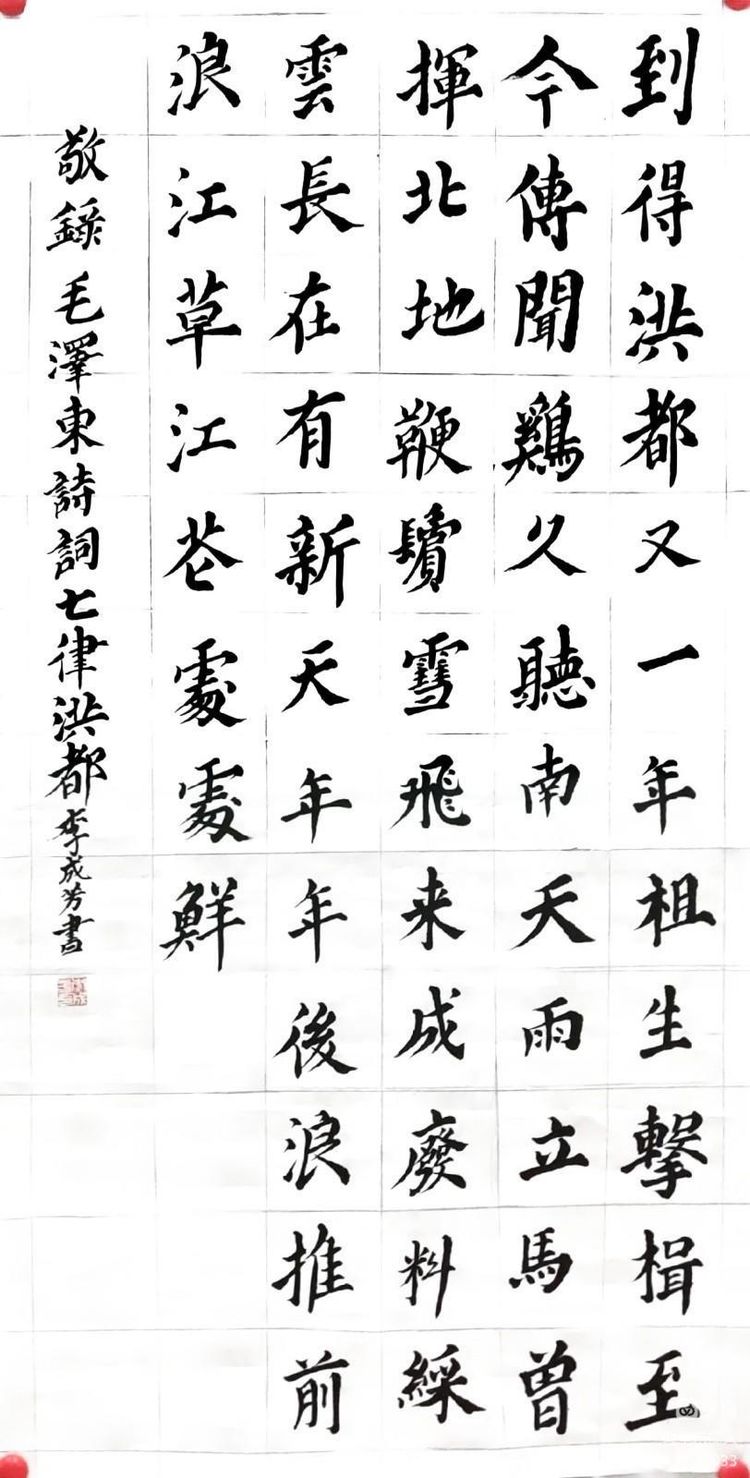 到得洪都又一年祖生擊楫至
今傳聞鷄久聽南天雨立馬曾
揮北地鞭鬢雪飛来成廢料綵
雲長在有新天年年後浪推前
浪江草江芲處處鮮
敬錄毛澤東詩詞七律洪都李成芳書